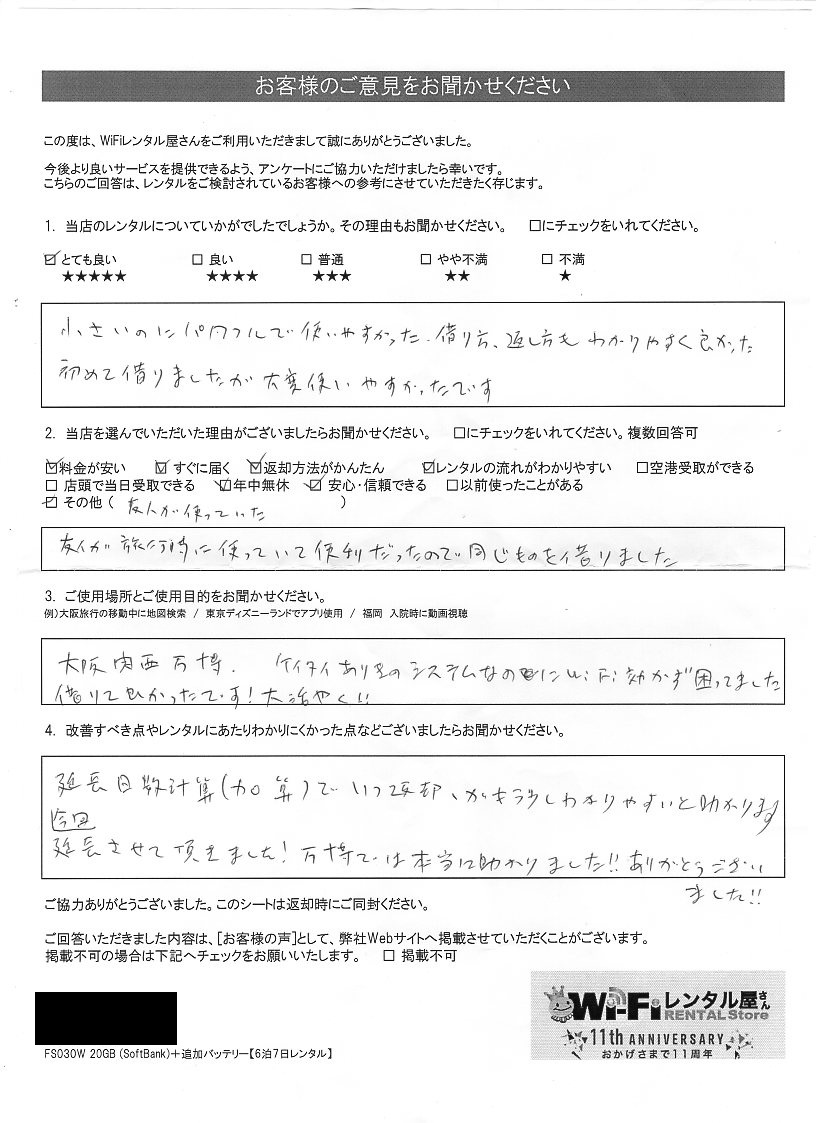 お客様のご意見をお聞かせください
この度は、WiFiレンタル屋さんをご利用いただきまして誠にありがとうございました。
今後より良いサービスを提供できるよう、アンケートにご協力いただけましたら幸いです。
こちらのご回答は、レンタルをご検討されているお客様への参考にさせていただきたく存じます。
1. 当店のレンタルについていかがでしたでしょうか。その理由もお聞かせください。 □にチェックをいれてください。
☑とても良い □ 良い □ 普通 □ やや不満 □ 不満
★★★★★ ★★★★ ★★★ ★★ ★
小さいのにパワフルで使いやすかった。借り方、返し方もわかりやすく良かった
初めて借りましたが大変使いやすかったです
2. 当店を選んでいただいた理由がございましたらお聞かせください。 □にチェックをいれてください。複数回答可
☑料金が安い ☑ すぐに届く ☑返却方法がかんたん ☑レンタルの流れがわかりやすい □空港受取ができる
□ 店頭で当日受取できる ☑年中無休 ☑ 安心・信頼できる □以前使ったことがある
☑ その他 ( 友人が使っていた )
友人が旅行時に使っていて便利だったので同じものを借りました
3. ご使用場所とご使用目的をお聞かせください。
例)大阪旅行の移動中に地図検索 / 東京ディズニーランドでアプリ使用 / 福岡 入院時に動画視聴
大阪関西万博. ケイタイありきのシステムなのにWiFi効かず困ってました
借りて良かったです!大活やく!!
4. 改善すべき点やレンタルにあたりわかりにくかった点などございましたらお聞かせください。
延長日数計算(加算)でいつ返却、がもう少しわかりやすいと助かります
今回
延長させて頂きました!万博では本当に助かりました!!ありがとうござい
ました!!
ご協力ありがとうございました。このシートは返却時にご同封ください。
ご回答いただきました内容は、[お客様の声]として、弊社Webサイトへ掲載させていただくことがございます。
掲載不可の場合は下記へチェックをお願いいたします。 □ 掲載不可
Wi-Fiレンタル屋さん
RENTAL Store
11th ANNIVERSARY
おかげさまで11周年
FS030W 20GB (SoftBank)+追加バッテリー【6泊7日レンタル】